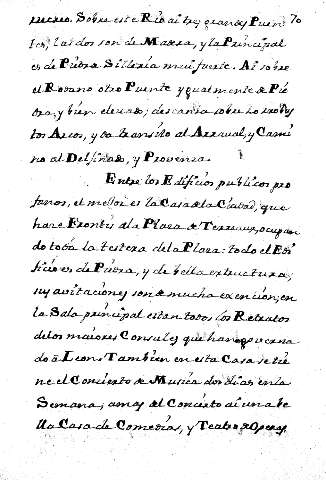 puereo. Sobre este Rio ai tres grandes Puen 70
tes, las dos son de Madera, y la Principal
es de Piedra Silleria mui fuerte. Ai sobre
el Rodano otro Puente ygualmente de Pie
dra, y bien elevado; descansa sobre
tos Arcos, y da transito al Arraval, y Cami
no al Delfinado, y Provenza.
Entre los Edificios publicos pro
fanos, el mejor es la Casa de la Ciudad, que
hace Frontis a la Plaza de Terreaux, ocupan
do toda la testera de la Plaza: todo el Edi
ficio es de Piedra, y de bella extructura;
sus avitaciones son de mucha extencion; en
la Sala principal estan todos los Retratos
de los maiores Consules que han governa
do à Leon: Tambien en esta Casa se tie
ne el Concierto de Musica dos dias en la
Semana; amas del Concierto ai una be
lla Casa de Comedias, y Teatro de Operas